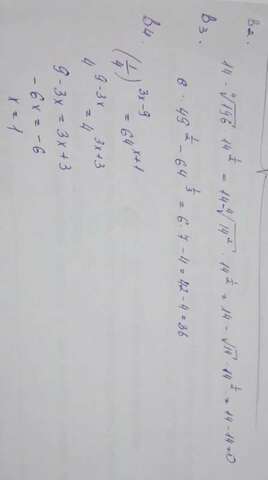 B2.
14 - ∜196 · 14^½ = 14 - ∜14² · 14^½ = 14 - √14 · 14^½ = 14 - 14 = 0
B3.
6 · 49^½ - 64^⅓ = 6 · 7 - 4 = 42 - 4 = 36
B4.
(1/4)^(3x-9) = 64^(x+1)
4^(9-3x) = 4^(3x+3)
9 - 3x = 3x + 3
-6x = -6
x = 1